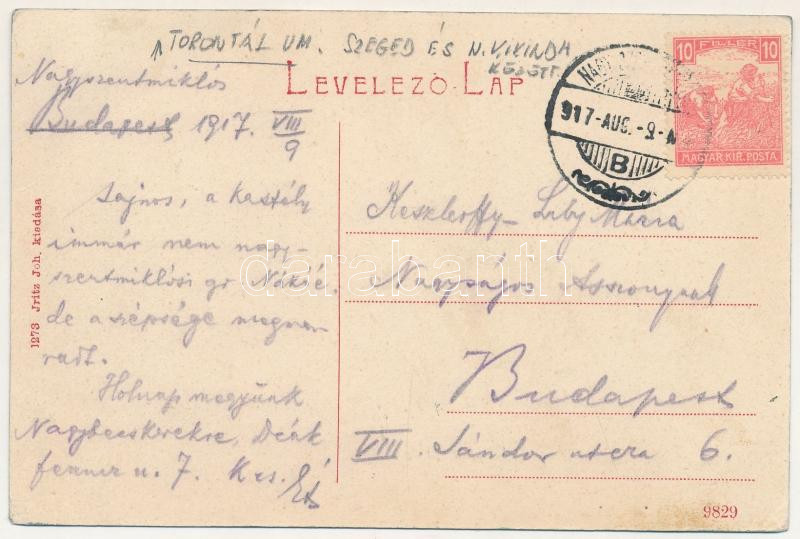 ↑ TORONTÁL VM. SZEGED ÉS N. KIKINDA
KÖZÖTT.
LEVELEZŐ LAP
Nagyszentmiklós
Budapest 1917. VIII/9
Sajnos, a kastély
immár nem nagy-
szentmiklósi gr. Nákóé,
de a szépsége megma-
radt.
Holnap megyünk
Nagybecskerekre, Deák
ferenc u. 7.
10 FILLER 10
MAGYAR KIR. POSTA
917-AUG.-9-
B
Mária
Nagyságos Asszonynak
Budapest
VIII. Sándor utcza 6.
1273 Jritz Joh. kiadása
9829
darabanth